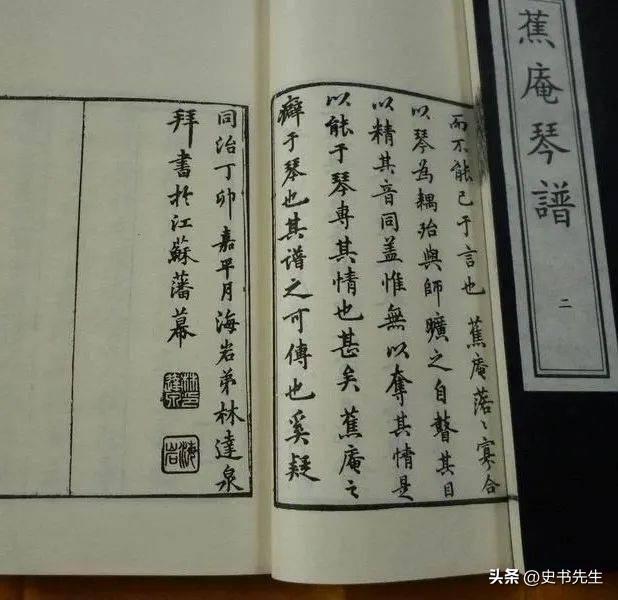 蕉庵琴譜
二
而不能已于言也蕉庵落〻寡合
以琴為耦殆與師曠之自瞽其目
以精其音同盖惟無以奪其情是
以能于琴專其情也甚矣蕉庵之
癖于琴也其譜之可傳也奚疑
同治丁卯嘉平月海岩弟林達泉
拜書於江蘇藩幕
林印達泉
海岩
头条 @史书先生